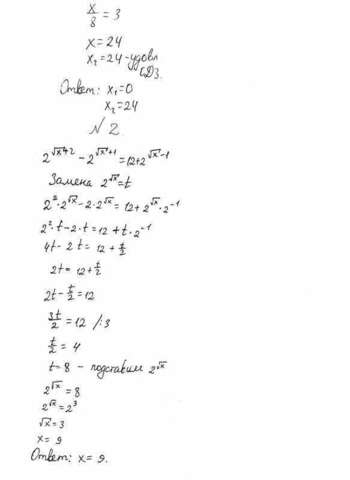 x/8 = 3
x = 24
x₂ = 24 - удовл
ОДЗ.
Ответ: x₁ = 0
x₂ = 24
№ 2
2^(√x+2) - 2^(√x+1) = 12 + 2^(√x-1)
Замена 2^√x = t
2² · 2^√x - 2 · 2^√x = 12 + 2^√x · 2^-1
2² · t - 2 · t = 12 + t · 2^-1
4t - 2t = 12 + t/2
2t = 12 + t/2
2t - t/2 = 12
3t/2 = 12 /:3
t/2 = 4
t = 8 - подставим 2^√x
2^√x = 8
2^√x = 2³
√x = 3
x = 9
Ответ: x = 9.